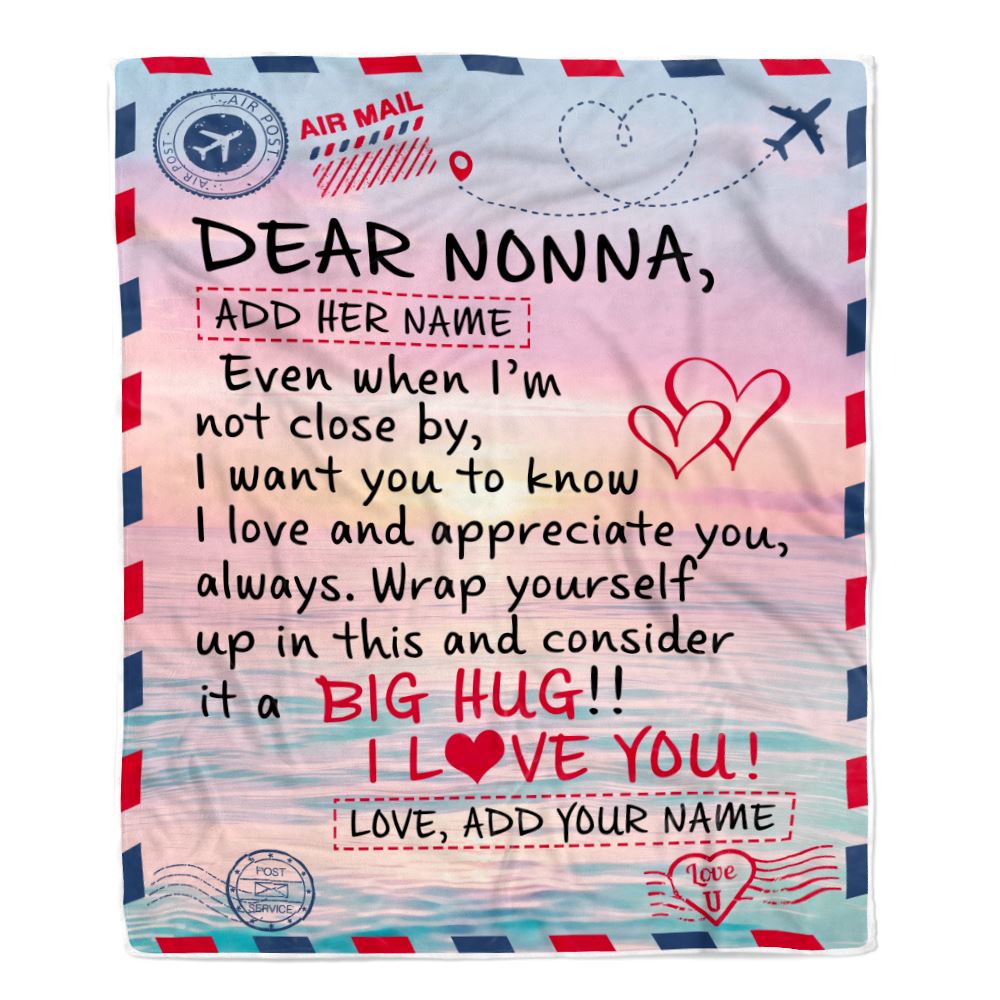 AIR POST
AIR POST
AIR POST
AIR MAIL
DEAR NONNA,
ADD HER NAME
Even when I'm
not close by,
I want you to know
I love and appreciate you,
always. Wrap yourself
up in this and consider
it a BIG HUG!!
I L♥VE YOU!
LOVE, ADD YOUR NAME
POST
SERVICE
Love
U